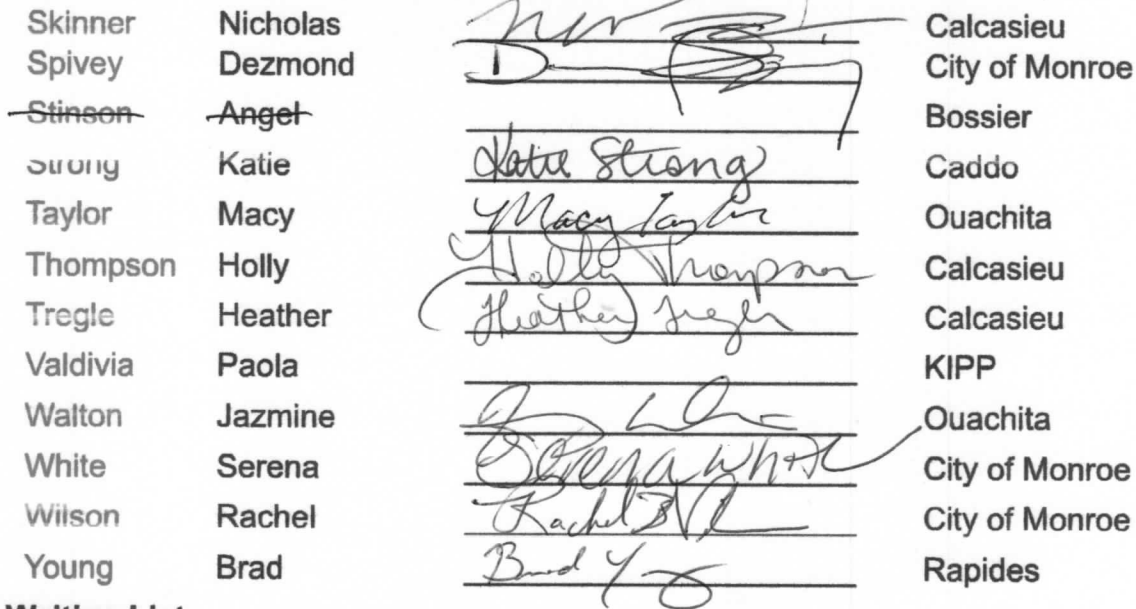 Skinner Nicholas Calcasieu
Spivey Dezmond D City of Monroe
Stinson Angel Bossier
Strong Katie Katie Strong Caddo
Taylor Macy Macy Taylor Ouachita
Thompson Holly Holly Thompson Calcasieu
Tregle Heather Heather Tregle Calcasieu
Valdivia Paola KIPP
Walton Jazmine Ouachita
White Serena Serena White City of Monroe
Wilson Rachel Rachel City of Monroe
Young Brad Brad Rapides
Waiting List